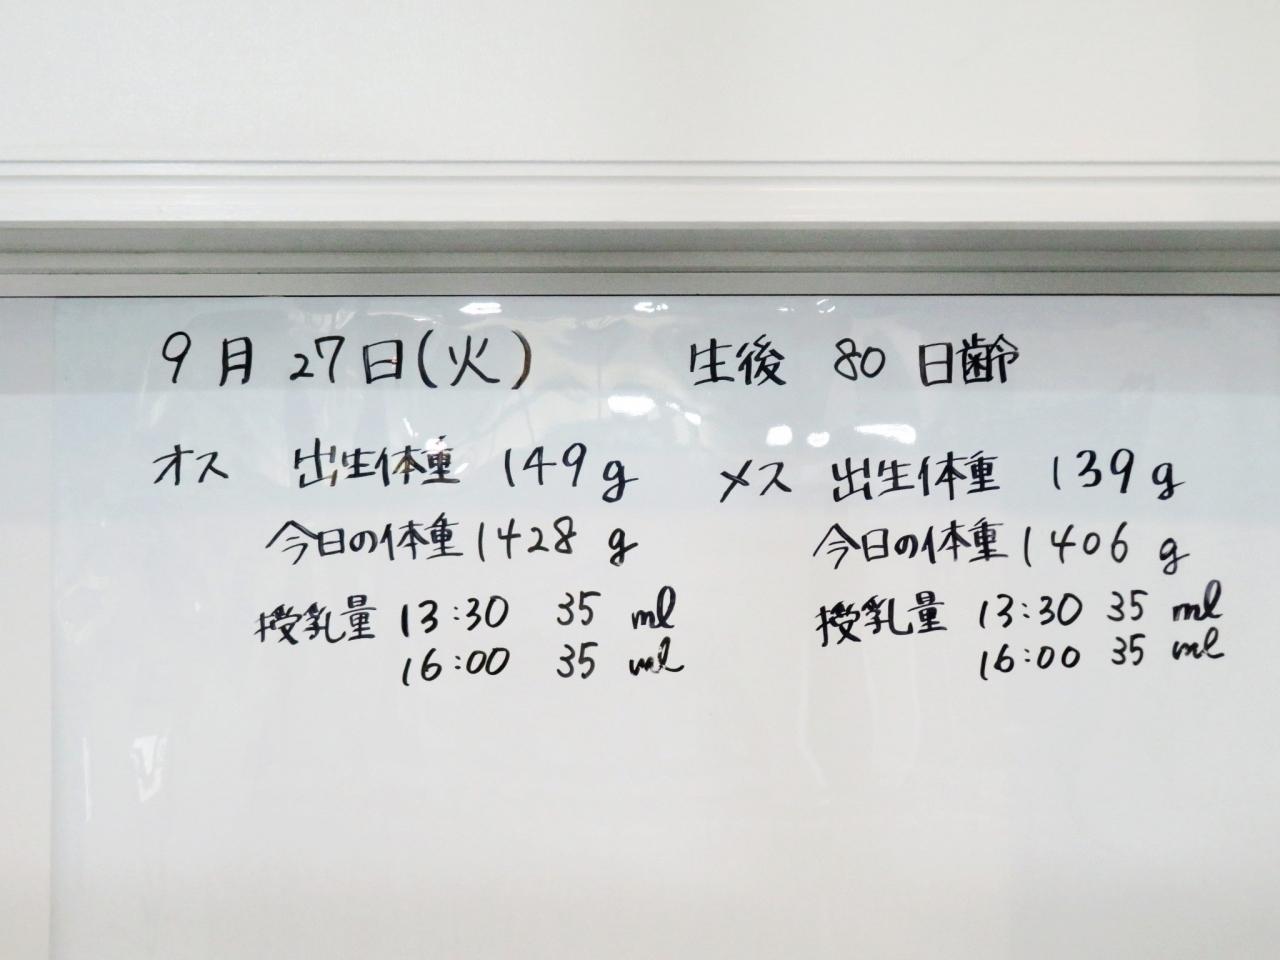 9月 27日(火) 生後 80 日齢
オス 出生体重 149g メス 出生体重 139g
今日の体重 1428 g 今日の体重 1406 g
授乳量 13:30 35 ml 授乳量 13:30 35 ml
16:00 35 ml 16:00 35 ml